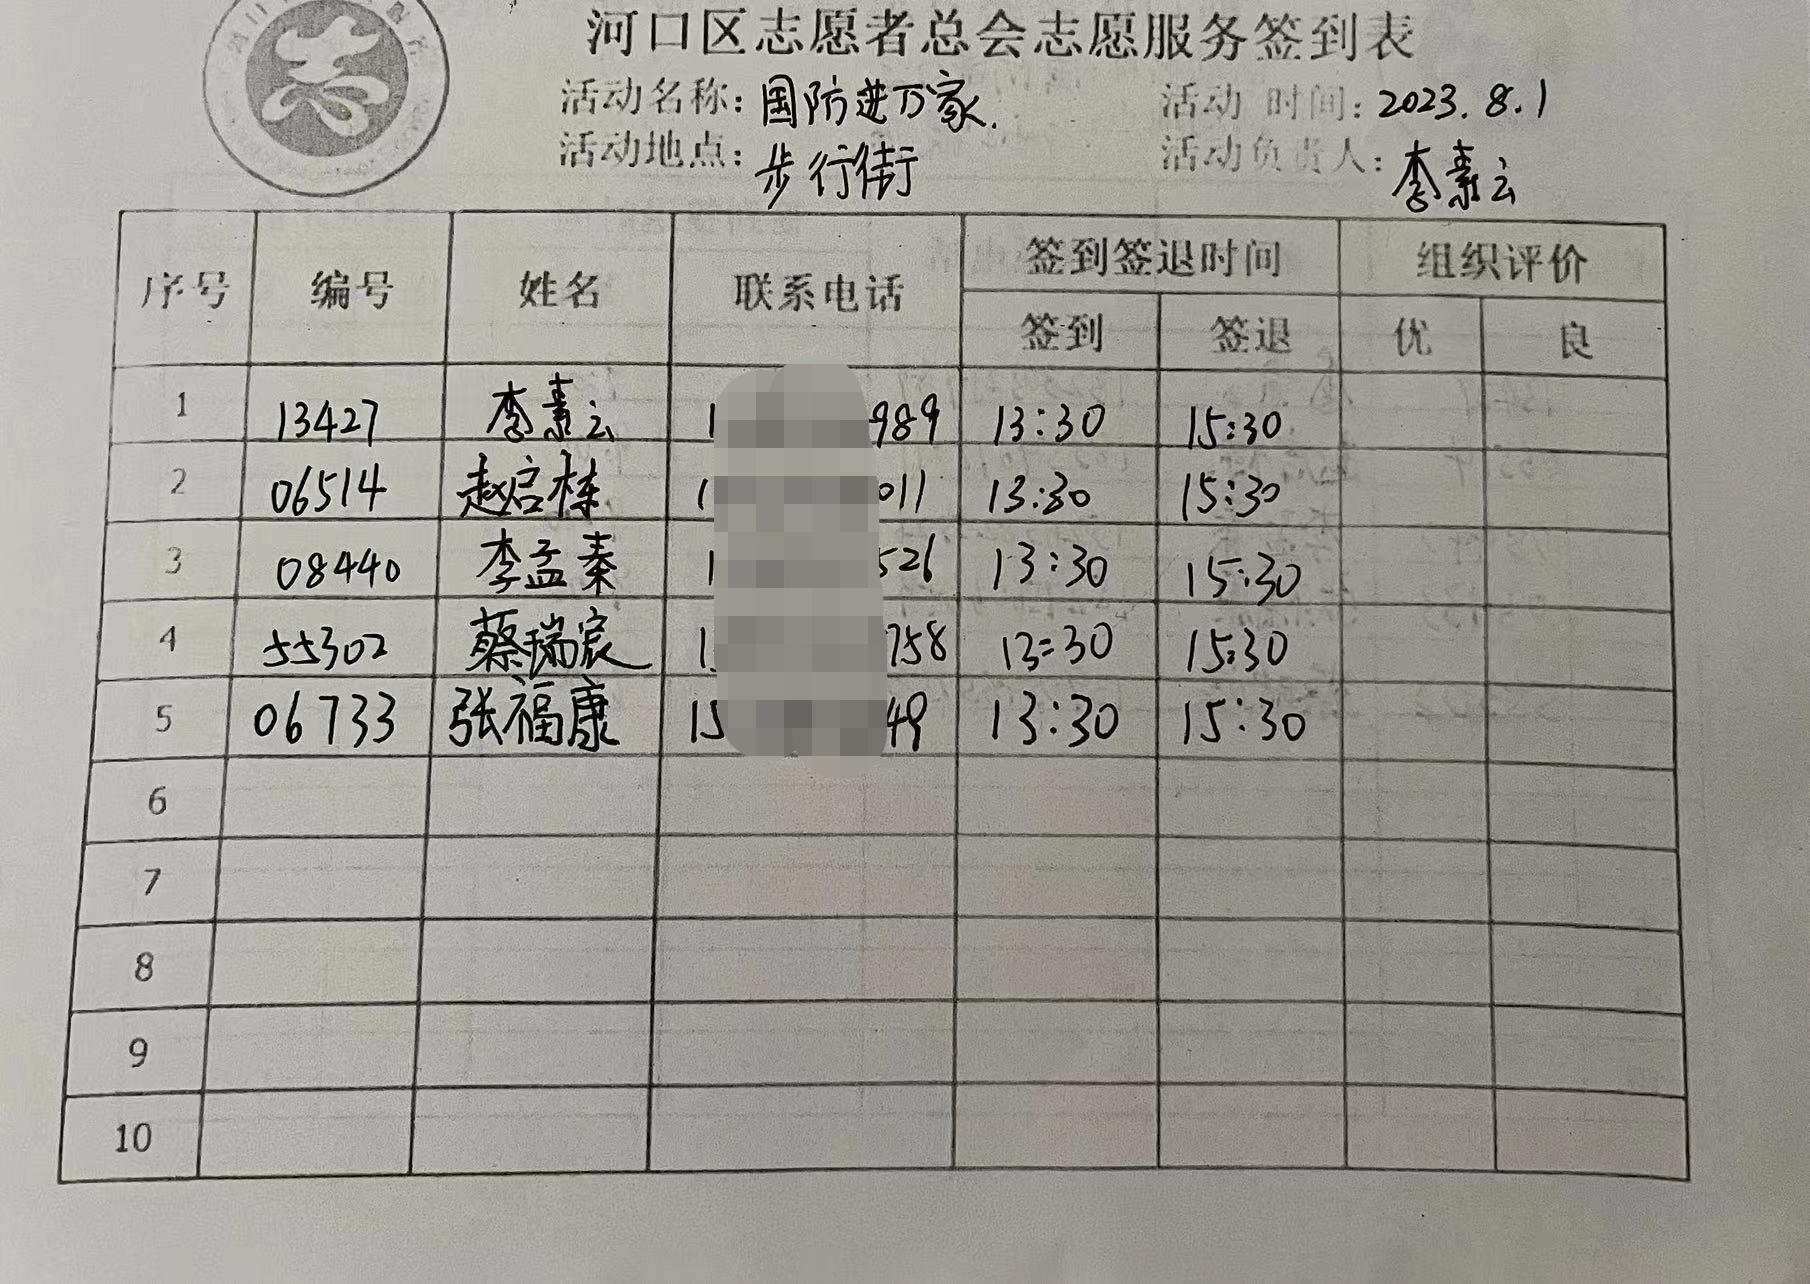 河口区志愿者总会志愿服务签到表
活动名称：国防进万家. 活动 时间：2023.8.1
活动地点：步行街 活动负责人：李素云
序号 编号 姓名 联系电话 签到签退时间 组织评价
签到 签退 优 良
1 13427 李素云 1 989 13:30 15:30
2 06514 赵启栋 1 011 13:30 15:30
3 08440 李孟秦 1 526 13:30 15:30
4 55302 蔡瑞宸 1 758 13:30 15:30
5 06733 张福康 15 49 13:30 15:30
6
7
8
9
10